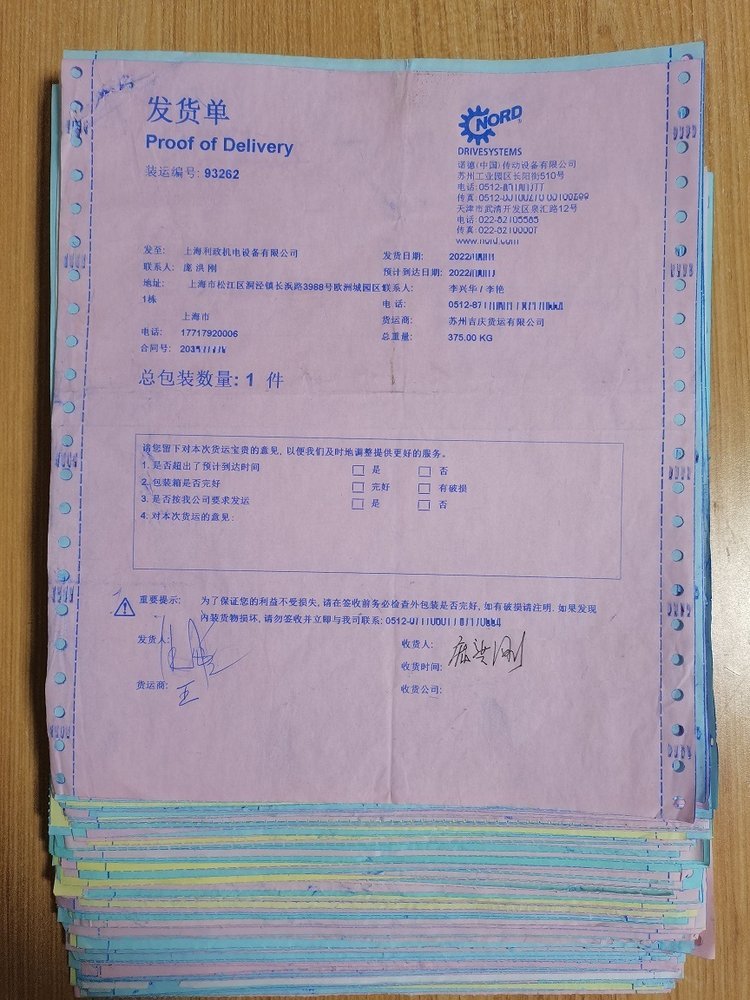 发货单
Proof of Delivery
装运编号: 93262
NORD
DRIVESYSTEMS
诺德(中国)传动设备有限公司
苏州工业园区长阳街510号
电话: 0512-
传真: 0512-
天津市武清开发区泉汇路12号
电话: 022-82105585
传真: 022-
www.nord.com
发至: 上海利政机电设备有限公司
联系人: 庞洪刚
地址: 上海市松江区洞泾镇长浜路3988号欧洲城园区
1栋
上海市
电话: 17717920006
合同号:
发货日期: 2022
预计到达日期: 2022
联系人: 李兴华 / 李艳
电 话: 0512-87
货运商: 苏州吉庆货运有限公司
总重量: 375.00 KG
总包装数量: 1 件
请您留下对本次货运宝贵的意见, 以便我们及时地调整提供更好的服务。
1. 是否超出了预计到达时间 是 否
2. 包装箱是否完好 完好 有破损
3. 是否按我公司要求发运 是 否
4. 对本次货运的意见:
重要提示: 为了保证您的利益不受损失, 请在签收前务必检查外包装是否完好, 如有破损请注明. 如果发现
内装货物损坏, 请勿签收并立即与我司联系: 0512-
发货人:
收货人: 庞洪刚
收货时间:
货运商: 王
收货公司: